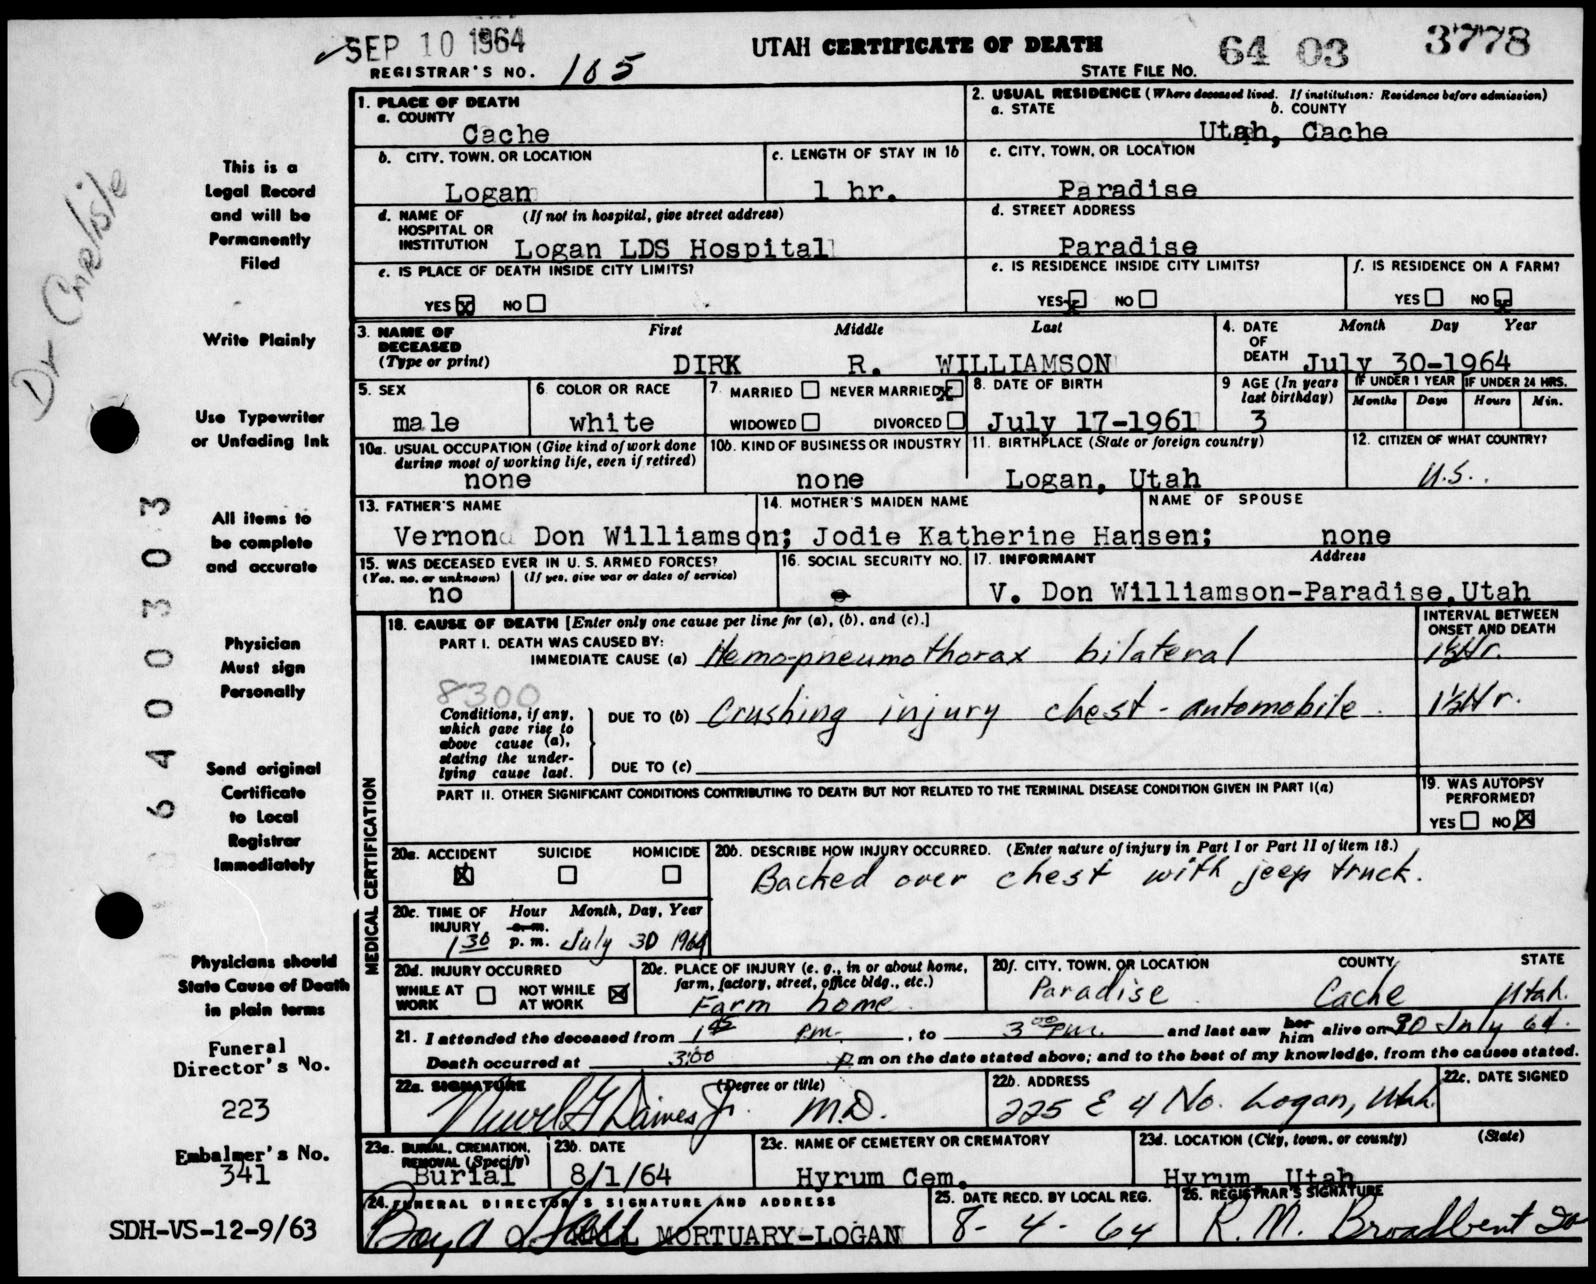 SEP 10 1964
UTAH CERTIFICATE OF DEATH
64 03 3778
REGISTRAR'S NO. 165
STATE FILE NO.
Dr Carlisle
This is a
Legal Record
and will be
Permanently
Filed
Write Plainly
Use Typewriter
or Unfading Ink
All items to
be complete
and accurate
Physician
Must sign
Personally
Send original
Certificate
to Local
Registrar
Immediately
Physicians should
State Cause of Death
in plain terms
Funeral
Director's No.
223
Embalmer's No.
341
SDH-VS-12-9/63
6400303
1. PLACE OF DEATH
a. COUNTY
Cache
2. USUAL RESIDENCE (Where deceased lived. If institution: Residence before admission)
a. STATE b. COUNTY
Utah, Cache
b. CITY, TOWN, OR LOCATION
Logan
c. LENGTH OF STAY IN 1b
1 hr.
c. CITY, TOWN, OR LOCATION
Paradise
d. NAME OF (If not in hospital, give street address)
HOSPITAL OR
INSTITUTION Logan LDS Hospital
d. STREET ADDRESS
Paradise
e. IS PLACE OF DEATH INSIDE CITY LIMITS?
YES X NO
e. IS RESIDENCE INSIDE CITY LIMITS?
YES x NO
f. IS RESIDENCE ON A FARM?
YES NO x
3. NAME OF First Middle Last
DECEASED
(Type or print) DIRK R. WILLIAMSON
4. DATE Month Day Year
OF
DEATH July 30-1964
5. SEX
male
6. COLOR OR RACE
white
7. MARRIED NEVER MARRIED x
WIDOWED DIVORCED
8. DATE OF BIRTH
July 17-1961
9 AGE (In years
last birthday)
3
IF UNDER 1 YEAR IF UNDER 24 HRS.
Months Days Hours Min.
10a. USUAL OCCUPATION (Give kind of work done
during most of working life, even if retired)
none
10b. KIND OF BUSINESS OR INDUSTRY
none
11. BIRTHPLACE (State or foreign country)
Logan, Utah
12. CITIZEN OF WHAT COUNTRY?
U.S.
13. FATHER'S NAME
Vernon Don Williamson;
14. MOTHER'S MAIDEN NAME
Jodie Katherine Hansen;
NAME OF SPOUSE
none
15. WAS DECEASED EVER IN U. S. ARMED FORCES?
(Yes, no, or unknown) (If yes, give war or dates of service)
no
16. SOCIAL SECURITY NO.
17. INFORMANT Address
V. Don Williamson-Paradise,Utah
MEDICAL CERTIFICATION
18. CAUSE OF DEATH [Enter only one cause per line for (a), (b), and (c).]
INTERVAL BETWEEN
ONSET AND DEATH
PART I. DEATH WAS CAUSED BY:
IMMEDIATE CAUSE (a) Hemo-pneumothorax bilateral 1½Hr.
8300
Conditions, if any,
which gave rise to
above cause (a),
stating the under-
lying cause last.
DUE TO (b) Crushing injury chest - automobile. 1½Hr.
DUE TO (c)
PART II. OTHER SIGNIFICANT CONDITIONS CONTRIBUTING TO DEATH BUT NOT RELATED TO THE TERMINAL DISEASE CONDITION GIVEN IN PART I(a)
19. WAS AUTOPSY
PERFORMED?
YES NO X
20a. ACCIDENT SUICIDE HOMICIDE
X
20b. DESCRIBE HOW INJURY OCCURRED. (Enter nature of injury in Part I or Part II of item 18.)
Backed over chest with jeep truck.
20c. TIME OF Hour Month, Day, Year
INJURY a.m.
1 30 p.m. July 30 1964
20d. INJURY OCCURRED
WHILE AT WORK NOT WHILE AT WORK X
20e. PLACE OF INJURY (e. g., in or about home,
farm, factory, street, office bldg., etc.)
Farm home
20f. CITY, TOWN, OR LOCATION COUNTY STATE
Paradise Cache Utah.
21. I attended the deceased from 1 45 Pm. , to 3 00 Pm. and last saw her him alive on 30 July 64.
Death occurred at 3:00 p m on the date stated above; and to the best of my knowledge, from the causes stated.
22a. SIGNATURE (Degree or title)
Daines Jr. M.D.
22b. ADDRESS
225 E 4 No. Logan, Utah.
22c. DATE SIGNED
23a. BURIAL, CREMATION,
REMOVAL (Specify)
Burial
23b. DATE
8/1/64
23c. NAME OF CEMETERY OR CREMATORY
Hyrum Cem.
23d. LOCATION (City, town, or county) (State)
Hyrum, Utah
24. FUNERAL DIRECTOR'S SIGNATURE AND ADDRESS
Boyd Hall
HALL MORTUARY-LOGAN
25. DATE RECD. BY LOCAL REG.
8-4-64
26. REGISTRAR'S SIGNATURE
R. M. Broadbent